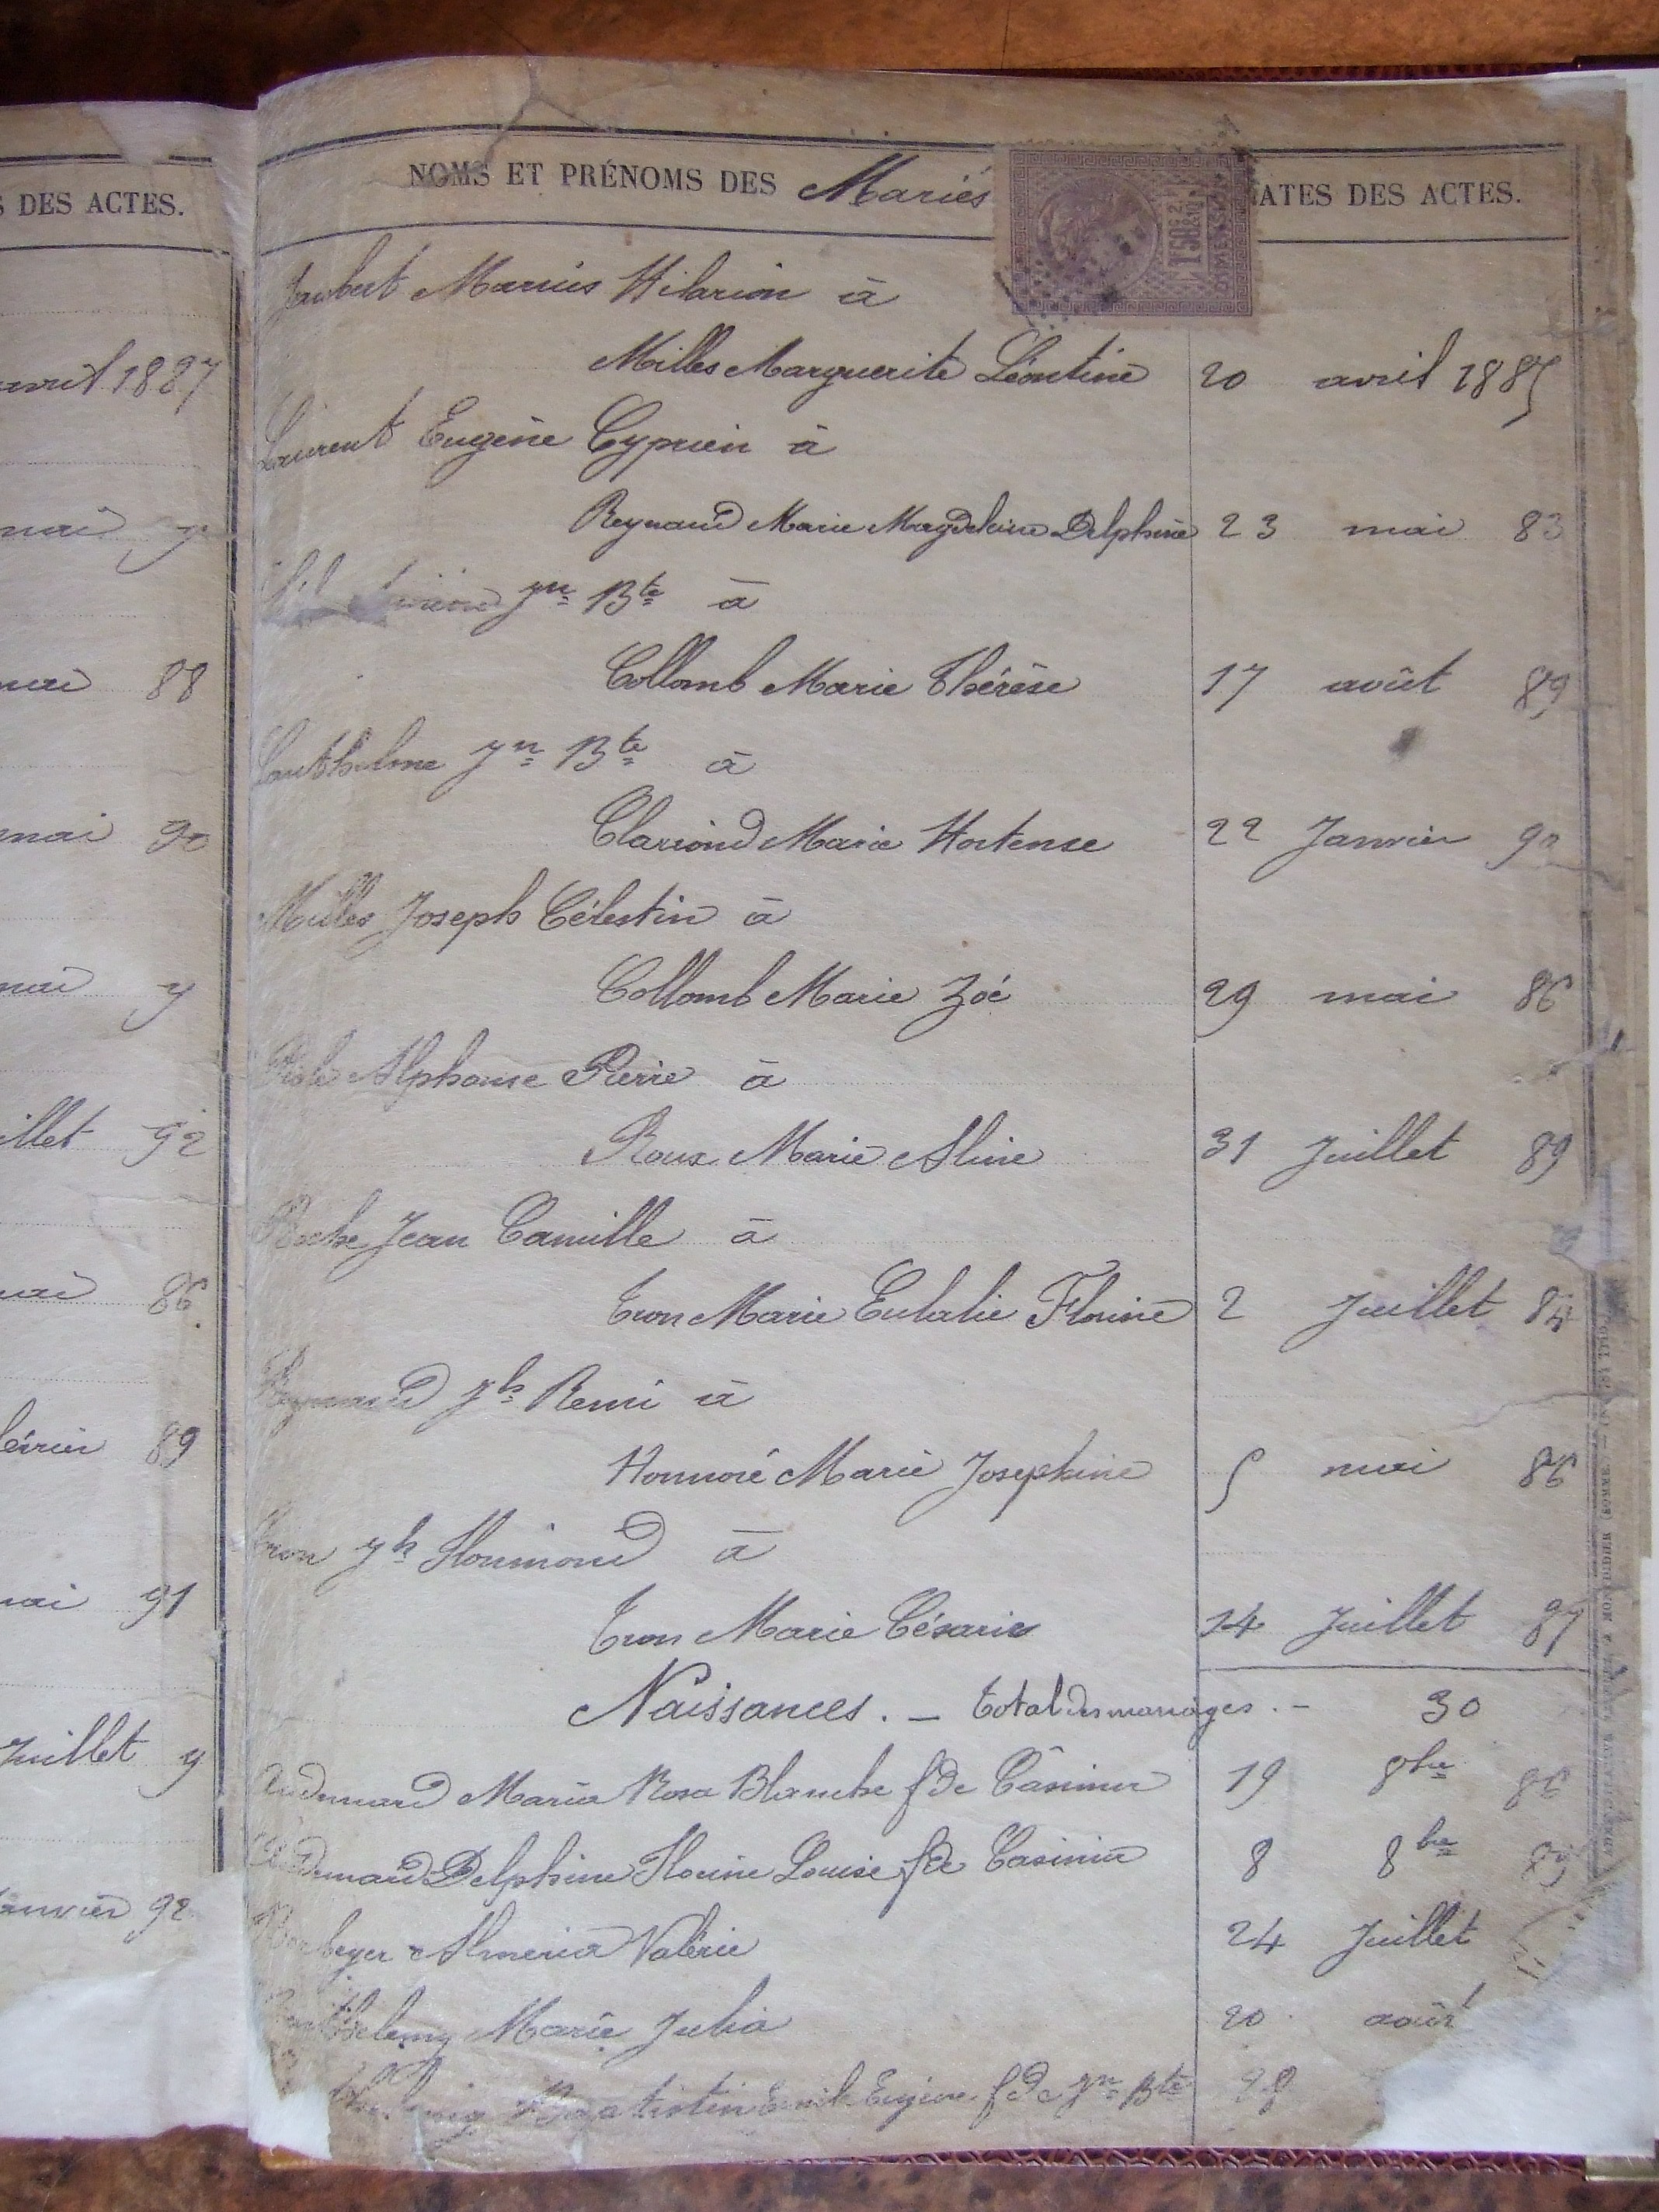 DES ACTES.
avril 1887
mai y
mai 88
mai 90
mai y
illet 92
mai 86
février 89
mai 91
Juillet y
anvier 92
NOMS ET PRÉNOMS DES Mariés DATES DES ACTES.
Jaubert Marius Hilarion à
Milles Marguerite Léontine 20 avril 1885
Laurent Eugène Cyprien à
Reynaud Marie Magdeleine Delphine 23 mai 83
Jn Bte à
Collomb Marie Thérèse 17 août 89
Lanthelme Jn Bte à
Clariond Marie Hortense 22 Janvier 90
Milles Joseph Célestin à
Collomb Marie Zoé 29 mai 86
Alphonse Pierre à
Roux Marie Aline 31 Juillet 89
Roche Jean Camille à
Tron Marie Eulalie Florine 2 Juillet 84
Reynaud Jh Remi à
Honnoré Marie Josephine 5 mai 86
Tron Jh Flourimond à
Tron Marie Césarie 14 Juillet 87
Naissances. — total des mariages. — 30
Audemard Maria Rosa Blanche f de Câsimir 19 8bre 86
Audemard Delphine Florine Louise f de Casimir 8 8bre
Almeria Valérie 24 Juillet
Barthelemy Marie Julia 20 août
Baptistin Emile Eugène f de Jn Bte 28